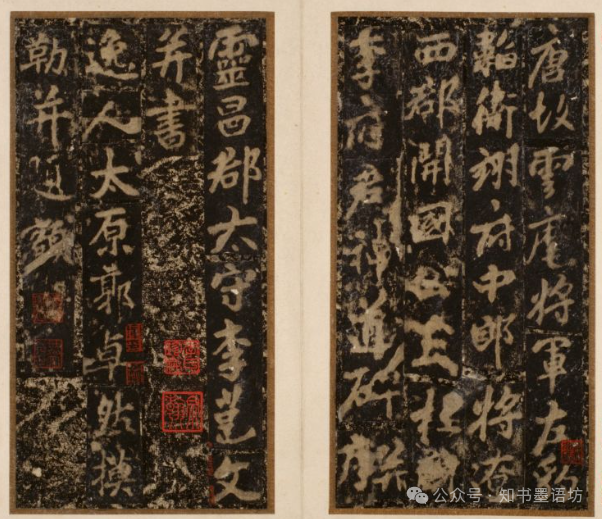 唐故雲麾將軍左豹
韜衛翊府中郎將遼
西郡開國公上柱國
李府君神道碑并序
靈昌郡太守李邕文
并書
逸人太原郭卓然摸
勒并題額
公众号：知书墨语坊